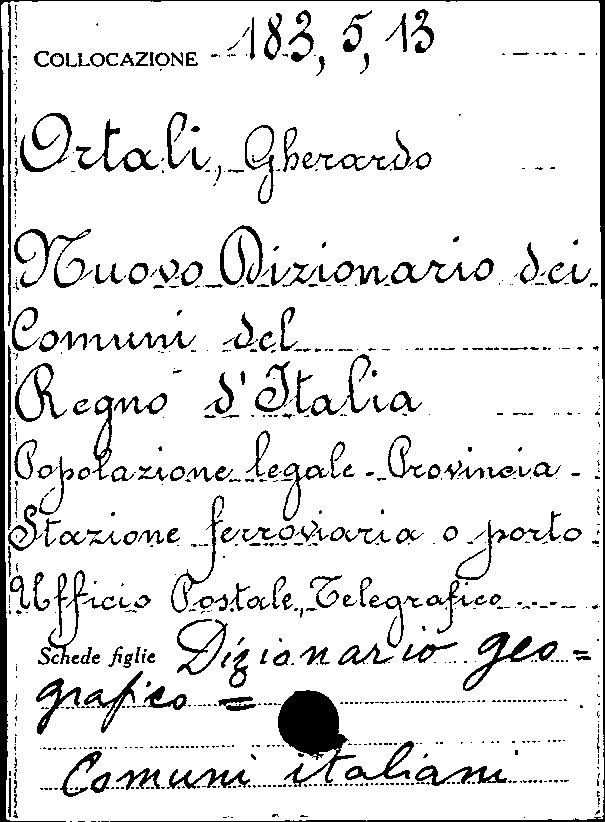 COLLOCAZIONE 183, 5, 13
Ortali, Gherardo
Nuovo Dizionario dei
Comuni del
Regno d'Italia
Popolazione legale - Provincia -
Stazione ferroviaria o porto
Ufficio Postale, Telegrafico
Schede figlie Dizionario geo=
grafico =
Comuni italiani